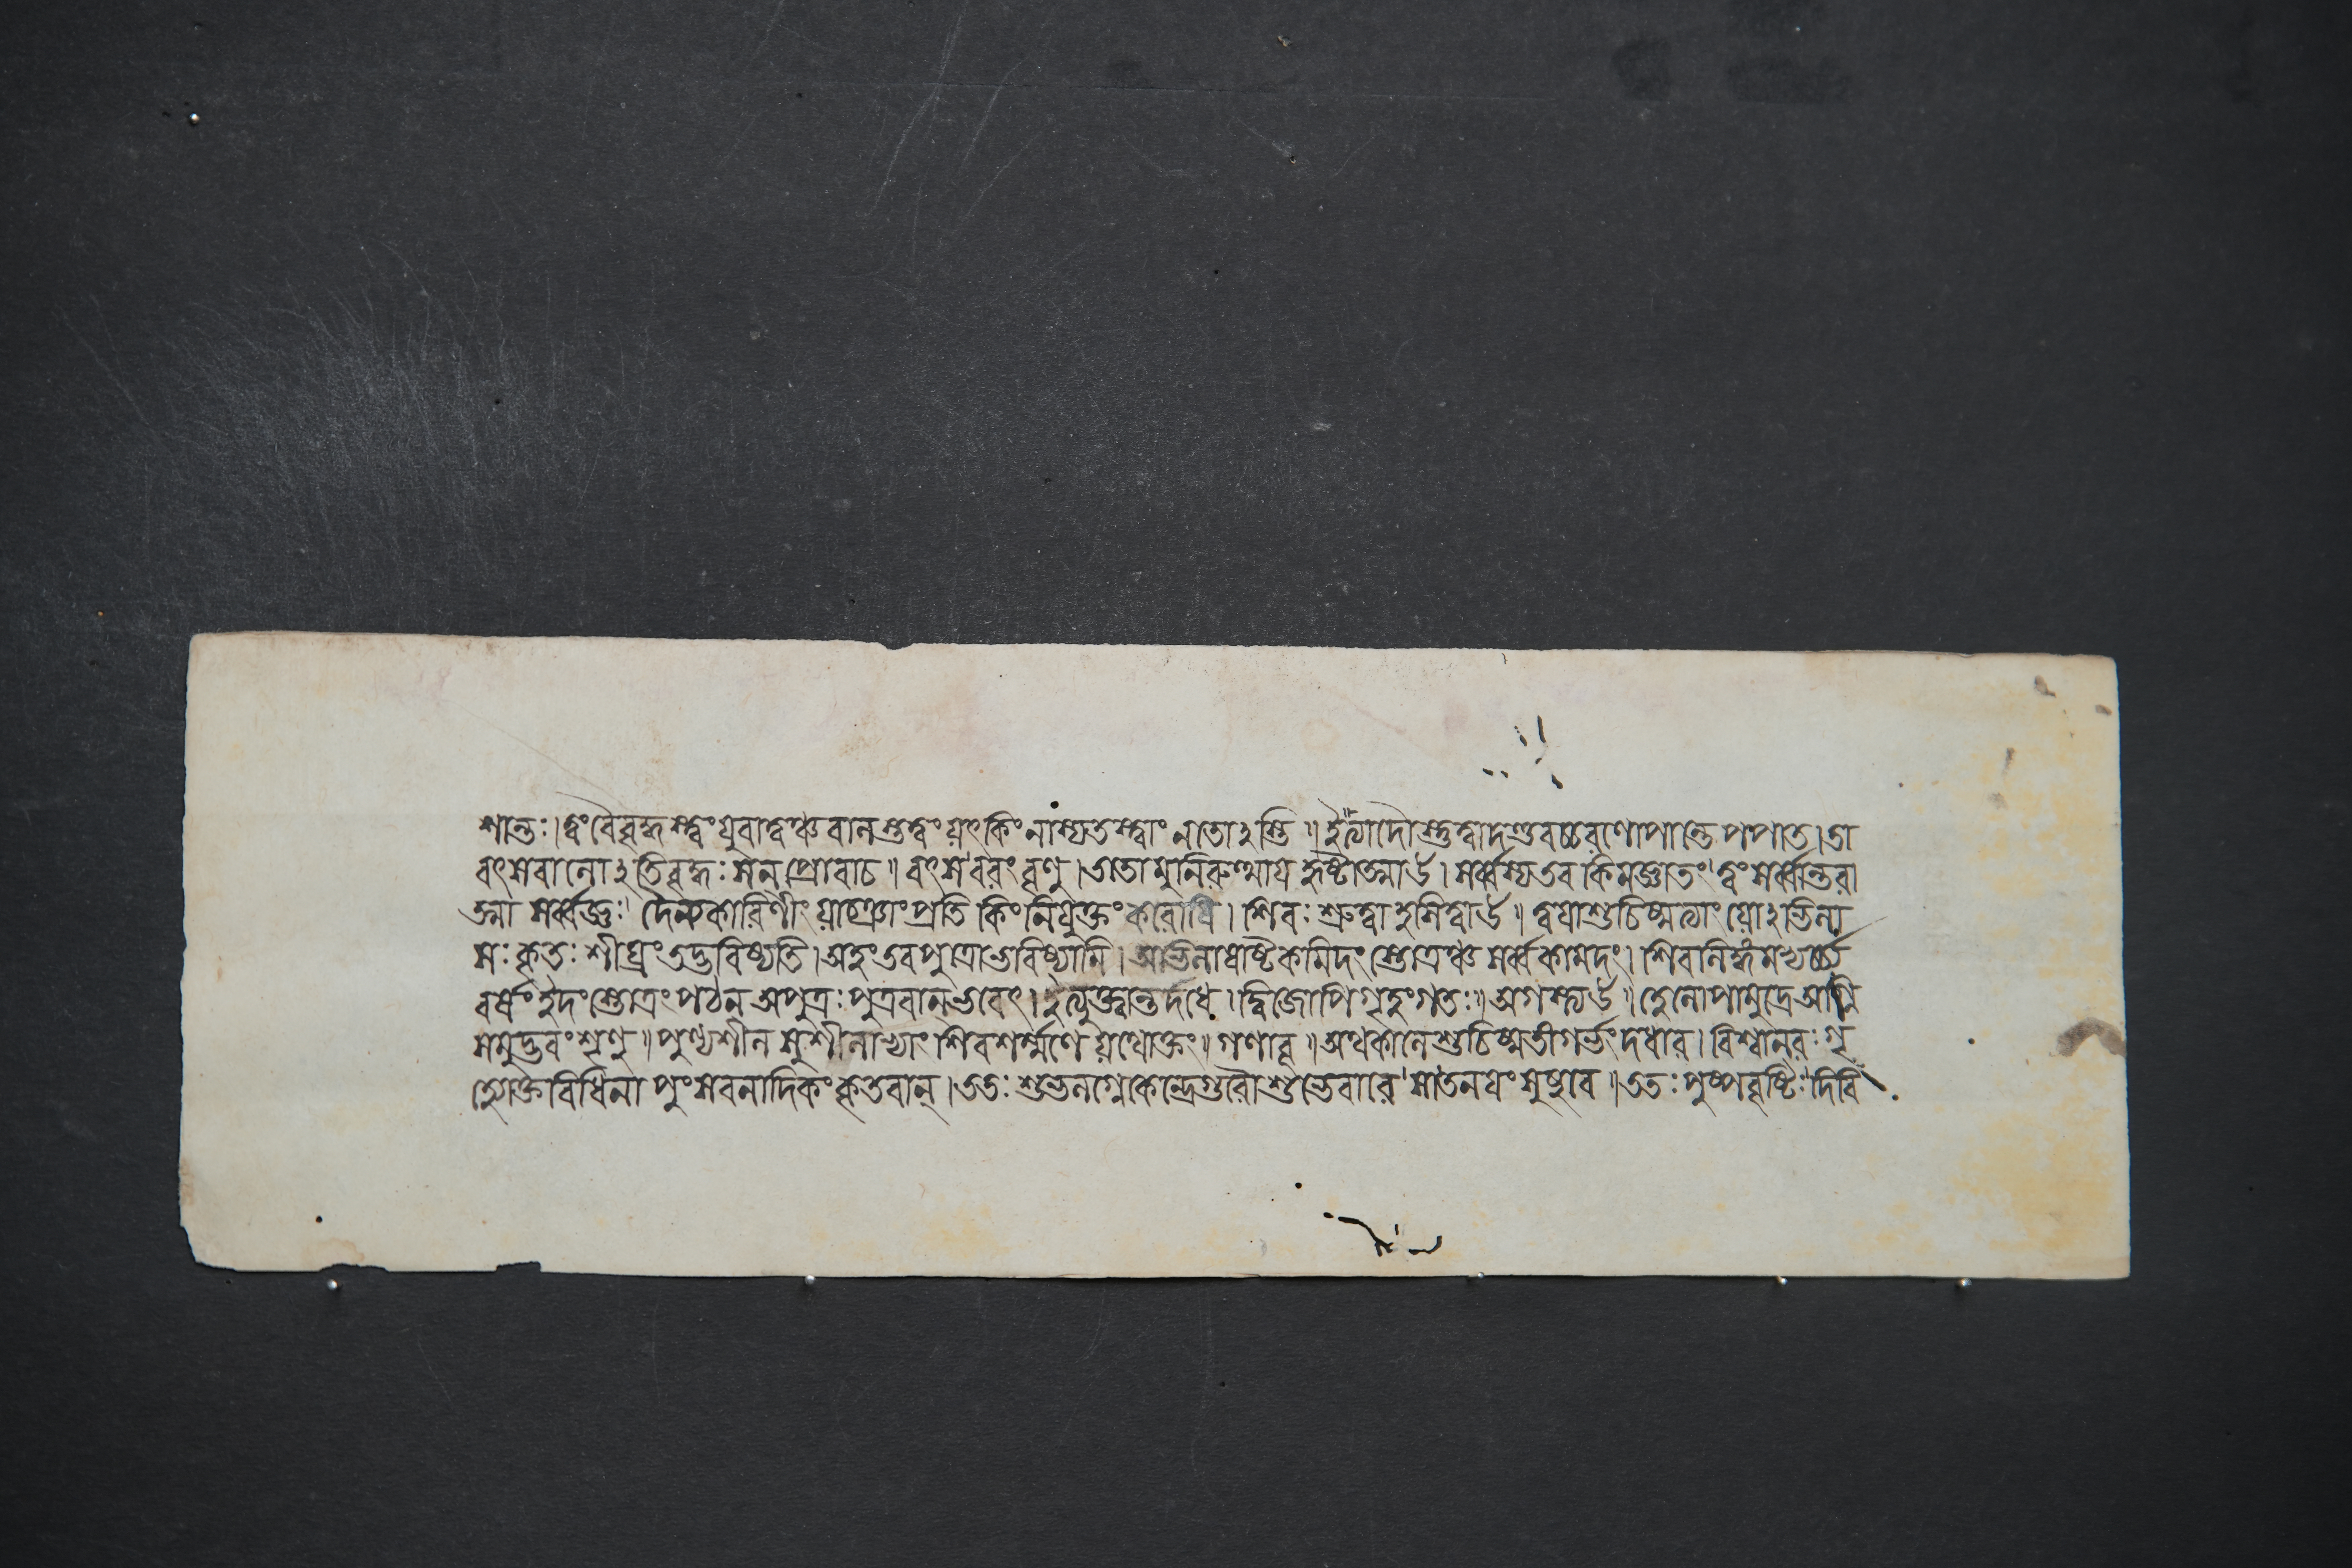 শান্তঃ।ত্বংবৈবৃদ্ধস্ত্বংযুবাত্বঞ্চবালস্তত্ত্বংযৎকিংনাস্যতস্ত্বাং নতোঽস্মি॥ইত্যাদৌস্তুত্বাদণ্ডবচ্চরণোপান্তেপপাত।তা
বৎসবালোঽতিবৃদ্ধঃসন্ প্রোবাচ॥বৎস বরংবৃণু।ততোমুনিরুত্থায়হৃষ্টাত্মাউ।সর্ব্বস্যতবকিমজ্ঞাতং ত্বংসর্ব্বান্তরা
ত্মা সর্ব্বজ্ঞঃ দৈন্যকারিণীংযাচ্ঞাংপ্রতি কিংনিযুক্তংকরোষি। শিবঃশ্রুত্বাহসিত্বাউ॥ত্বয়াশুচিষ্মত্যাংযোঽভিলা
সঃকৃতঃশীঘ্রংতদ্ভবিষ্যতি।অহংতবপুত্রোভবিষ্যামি।অভিলাষাষ্টকমিদংস্তোত্রঞ্চসর্ব্বকামদং।শিবালিঙ্গ
বর্ষং ইদংস্তোত্রংপঠন্অপুত্রঃপুত্রবান্ভবেৎ।ইত্যুক্ত্বান্তর্দধে।দ্বিজোপিগৃহংগতঃ॥অগস্ত্যউ॥লোপামুদ্রেঅগ্নি
সমুদ্ভবংশৃণু॥পুণ্যশীলসুশীলাভ্যাং শিবশর্ম্মণেযথোক্তং॥গণাবূ॥অথকালেশুচিষ্মতীগর্ভংদধার।বিশ্বানরঃগৃ
হ্যোক্তবিধিনা পুংসবনাদিকংকৃতবান্।ততঃশুভলগ্নেকেন্দ্রেগুরৌশুভেবারে সাতনয়ংসুষুবে॥ততঃপুষ্পবৃষ্টিঃদিবি